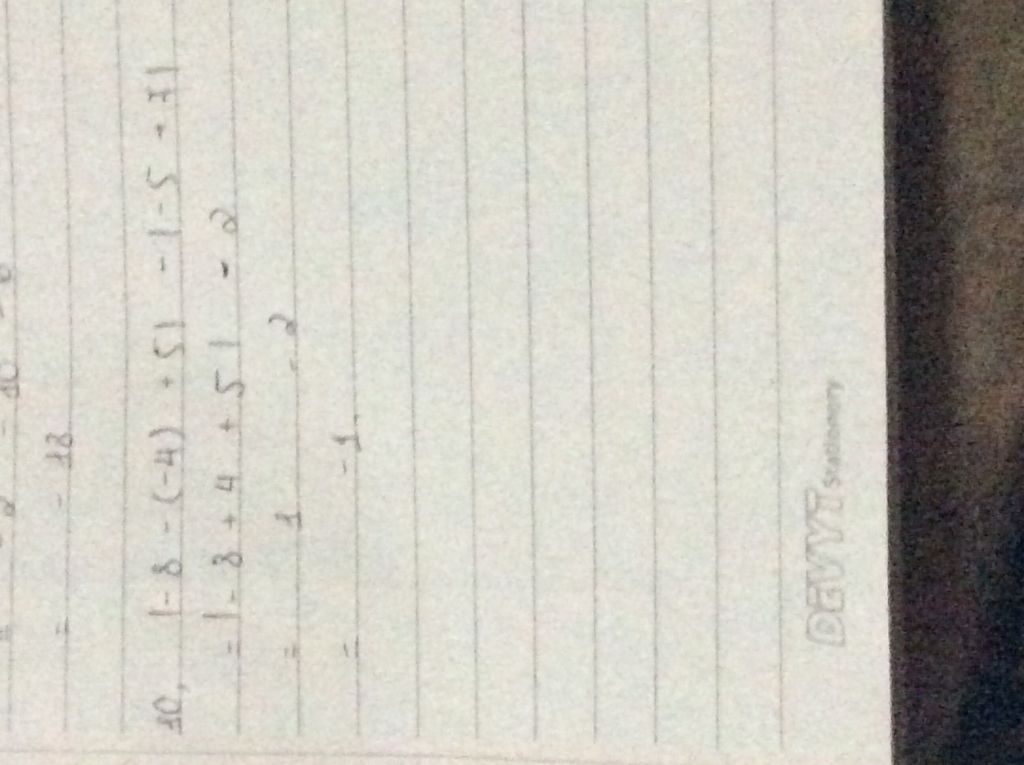 = - 18
10, |-8 - (-4) + 5| - |-5 + 7|
= |-8 + 4 + 5| - 2
= 1 - 2
= - 1
DEVYT Stationery